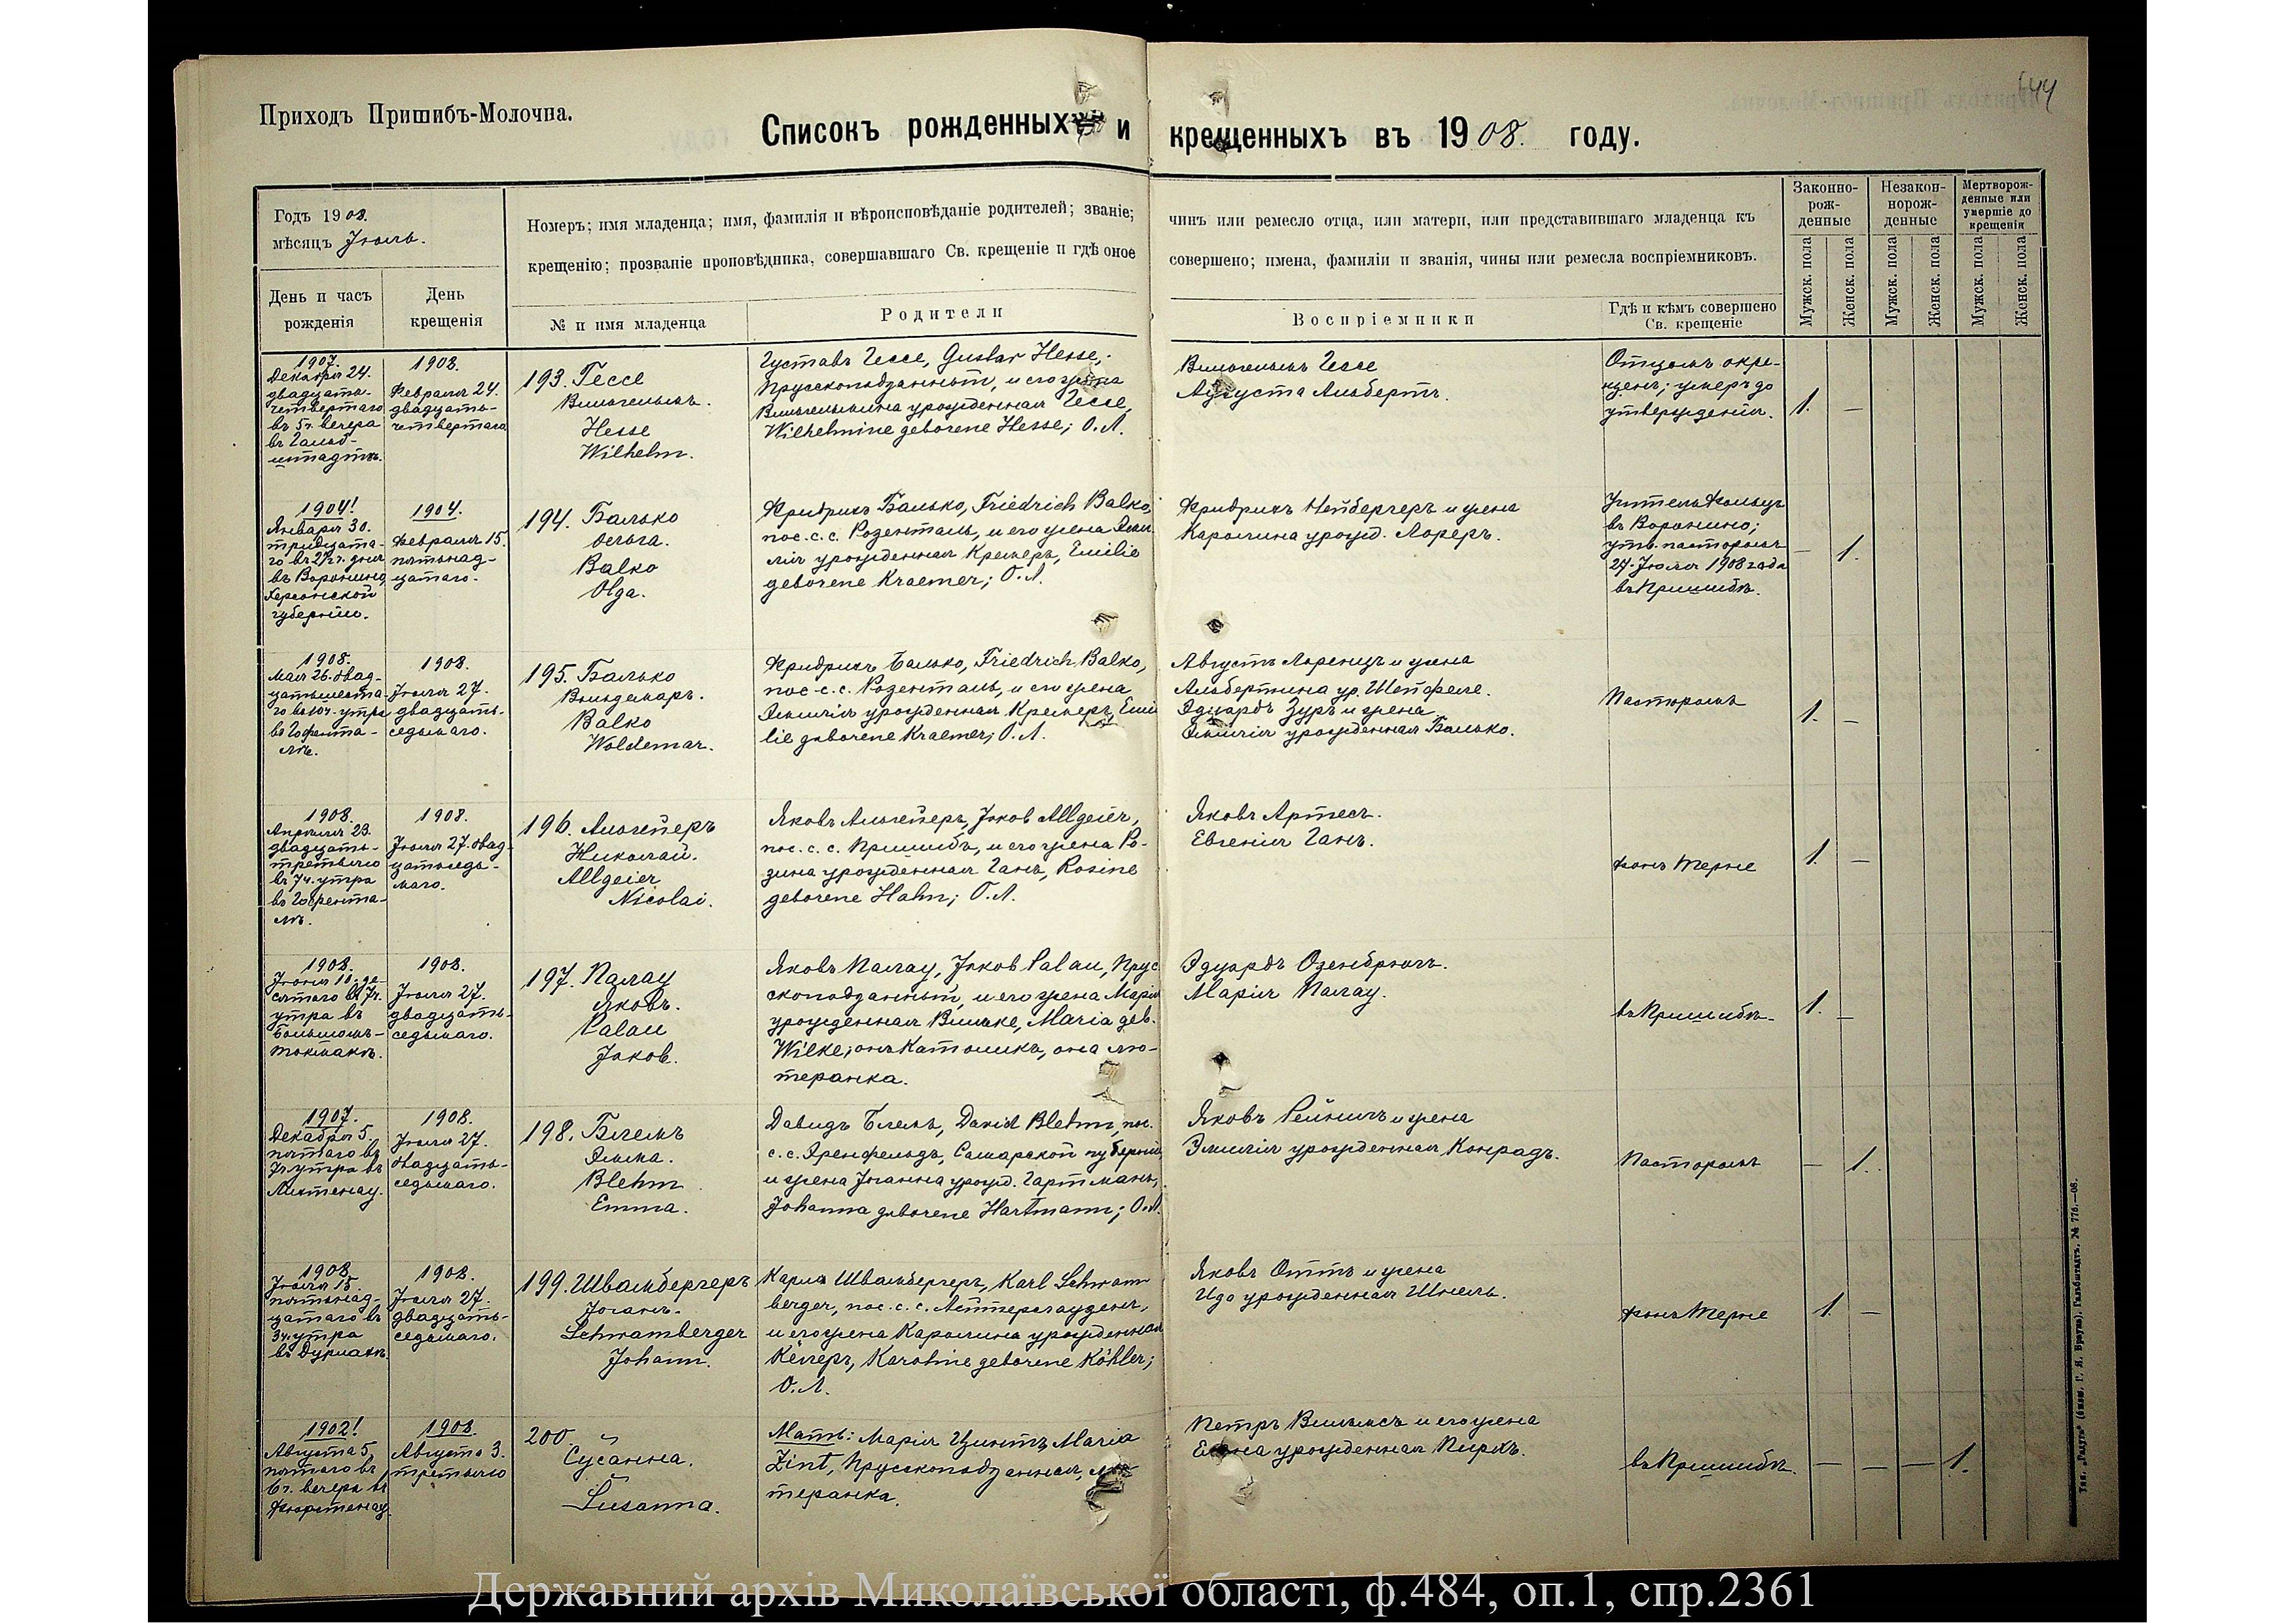 Приходъ Пришибъ-Молочна.
644
Списокъ рожденныхъ и крещенныхъ въ 1908. году.
Годъ 1908.
мѣсяцъ Іюль.
День и часъ рожденія
День крещенія
Номеръ; имя младенца; имя, фамилія и вѣроисповѣданіе родителей; званіе; чинъ или ремесло отца, или матери, или представившаго младенца къ
крещенію; прозваніе проповѣдника, совершавшаго Св. крещеніе и гдѣ оное совершено; имена, фамиліи и званія, чины или ремесла воспріемниковъ.
№ и имя младенца
Родители
Воспріемники
Гдѣ и кѣмъ совершено
Св. крещеніе
Законно-
рож-
денные
Незакон-
норож-
денные
Мертворож-
денные или
умершіе до
крещенія
Мужск. пола
Женск. пола
Мужск. пола
Женск. пола
Мужск. пола
Женск. пола
1907.
Декабря 24.
двадцать-
четвертаго
въ 5ч. вечера
въ Гальб-
штадтѣ.
1908.
Февраля 24.
двадцать-
четвертаго
193. Гессе
Вильгельмъ.
Hesse
Wilhelm.
Густавъ Гессе, Gustav Hesse,
Прусскоподданный, и его жена
Вильгельмина урожденная Гессе,
Wilhelmine geborene Hesse; О.Л.
Вильгельмъ Гессе
Августа Альбертъ.
Отцомъ окре-
щенъ; умеръ до
утвержденія.
1. —
1904!
Января 30.
тридцата-
го въ 2½ч. дня
въ Воронино,
Херсонской
губерніи.
1904.
Февраля 15.
пятнад-
цатаго.
194. Балько
Ольга.
Balko
Olga.
Фридрихъ Балько, Friedrich Balko,
пос. с. с. Розенталь, и его жена Эми-
лія урожденная Кремеръ, Emilie
geborene Kraemer; О.Л.
Фридрихъ Нейбергеръ и жена
Каролина урожд. Лореръ.
Учитель Фольцъ
въ Воронино;
утв. пасторомъ
27. Іюля 1908 года
въ Пришибѣ.
— 1.
1908.
Мая 26. двад-
цатьшеста-
го въ 10ч. утра
въ Гофента-
лѣ.
1908.
Іюля 27.
двадцать-
седьмаго.
195. Балько
Вольдемаръ.
Balko
Woldemar.
Фридрихъ Балько, Friedrich Balko,
пос. с. с. Розенталь, и его жена
Эмилія урожденная Кремеръ, Emi-
lie geborene Kraemer; О.Л.
Августъ Лоренцъ и жена
Альбертина ур. Шейфеле.
Эдуардъ Зуръ и жена
Эмилія урожденная Балько.
Пасторомъ
1. —
1908.
Апрѣля 23.
двадцать-
третьяго
въ 7ч. утра
въ Гофента-
лѣ.
1908.
Іюля 27. двад-
цатьседь-
маго.
196. Альгейеръ
Николай.
Allgeier
Nicolai.
Яковъ Альгейеръ, Jakob Allgeier,
пос. с. с. Пришибъ, и его жена Ро-
зина урожденная Ганъ, Rosine
geborene Hahn; О.Л.
Яковъ Артесъ.
Евгенія Ганъ.
фонъ Терне
1. —
1908.
Іюня 10. де-
сятаго въ 7ч.
утра въ
Большомъ-
Токмакѣ.
1908.
Іюля 27.
двадцать-
седьмаго.
197. Палау
Яковъ.
Palau
Jakob.
Яковъ Палау, Jakob Palau, Прус-
скоподданный, и его жена Марія
урожденная Вильке, Maria geb.
Wilke; онъ Католикъ, она лю-
теранка.
Эдуардъ Озенбрюгъ.
Марія Палау.
въ Пришибѣ.
1. —
1907.
Декабря 5.
пятаго въ
7ч. утра въ
Лихтенау.
1908.
Іюля 27.
двадцать-
седьмаго.
198. Блемъ
Эмма.
Blehm
Emma.
Давидъ Блемъ, David Blehm, пос.
с. с. Эренфельдъ, Самарской губерніи
и жена Іоганна урожд. Гартманъ,
Johanna geborene Hartmann; О.Л.
Яковъ Рейнихъ и жена
Эмилія урожденная Конрадъ.
Пасторомъ
— 1.
1908.
Іюля 15.
пятнад-
цатаго въ
3ч. утра
въ Дурлахѣ.
1908.
Іюля 27.
двадцать-
седьмаго.
199. Швамбергеръ
Іоганъ.
Schwamberger
Johann.
Карлъ Швамбергеръ, Karl Schwam-
berger, пос. с. с. Лейтерсгаузенъ,
и его жена Каролина урожденная
Кёлеръ, Karoline geborene Köhler;
О.Л.
Яковъ Оттъ и жена
Ида урожденная Шнель.
фонъ Терне
1. —
1902!
Августа 5.
пятаго въ
6ч. вечера въ
Фюрстенау.
1908.
Августа 3.
третьяго
200.
Сусанна.
Susanna.
Мать: Марія Цинтъ, Maria
Zint, Прусскоподданная, лю-
теранка.
Петръ Вильмсъ и его жена
Елена урожденная Пиркъ.
въ Пришибѣ.
— — — 1.
Тип. „Радуга“ (бывш. Г. Я. Браунъ), Гальбштадтъ, № 776.—08.
Державний архів Миколаївської області, ф.484, оп.1, спр.2361